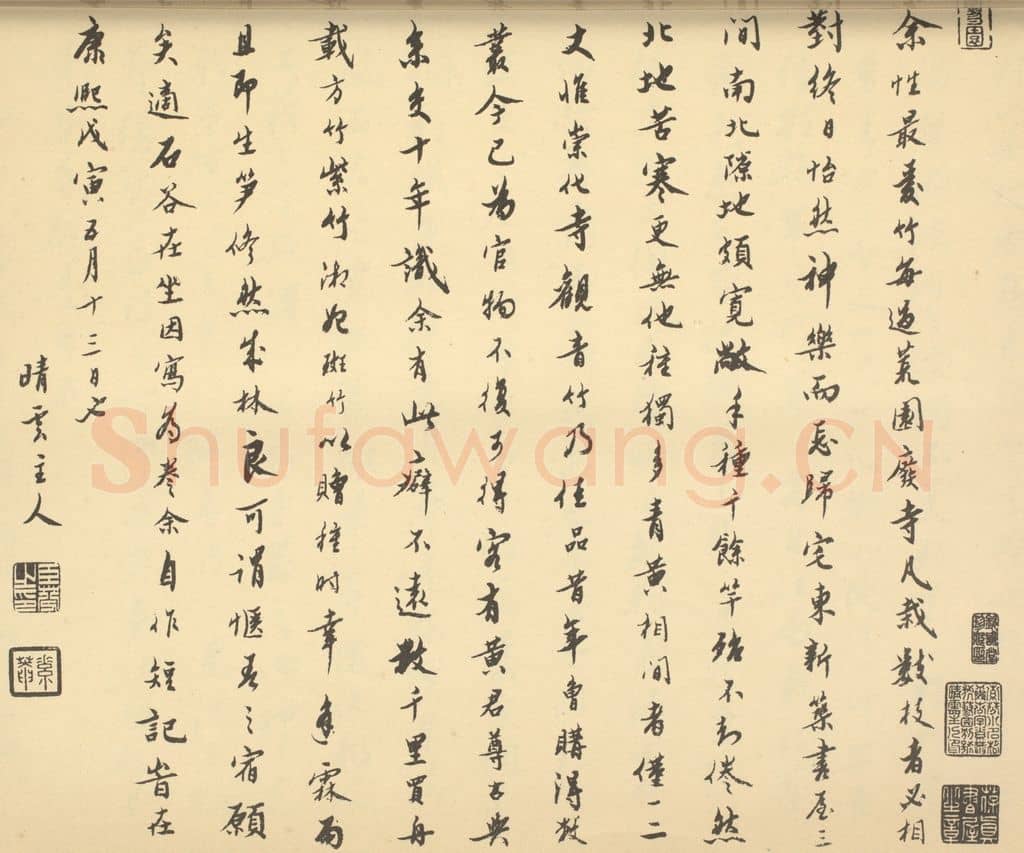 余性最爱竹每过荒園廢寺凡栽數枝者必相
對終日怡然神樂而忘歸宅東新築書屋三
間南北隙地頗寬敞手種千餘竿殆不知倦然
北地苦寒更無他種獨多青黄相間者僅一二
丈惟崇化寺觀音竹乃佳品昔年曾購得數
叢今已為官物不復可得客有黄君尊古與
余交十年識余有此癖不遠數千里買舟
載方竹紫竹湘妃斑竹以贈種時幸逢霖雨
且即生笋修然成林良可謂愜吾之宿願
矣適石谷在坐因寫為卷余自作短記旹在
康熙戊寅五月十三日也
晴雲主人
Shufawang.CN